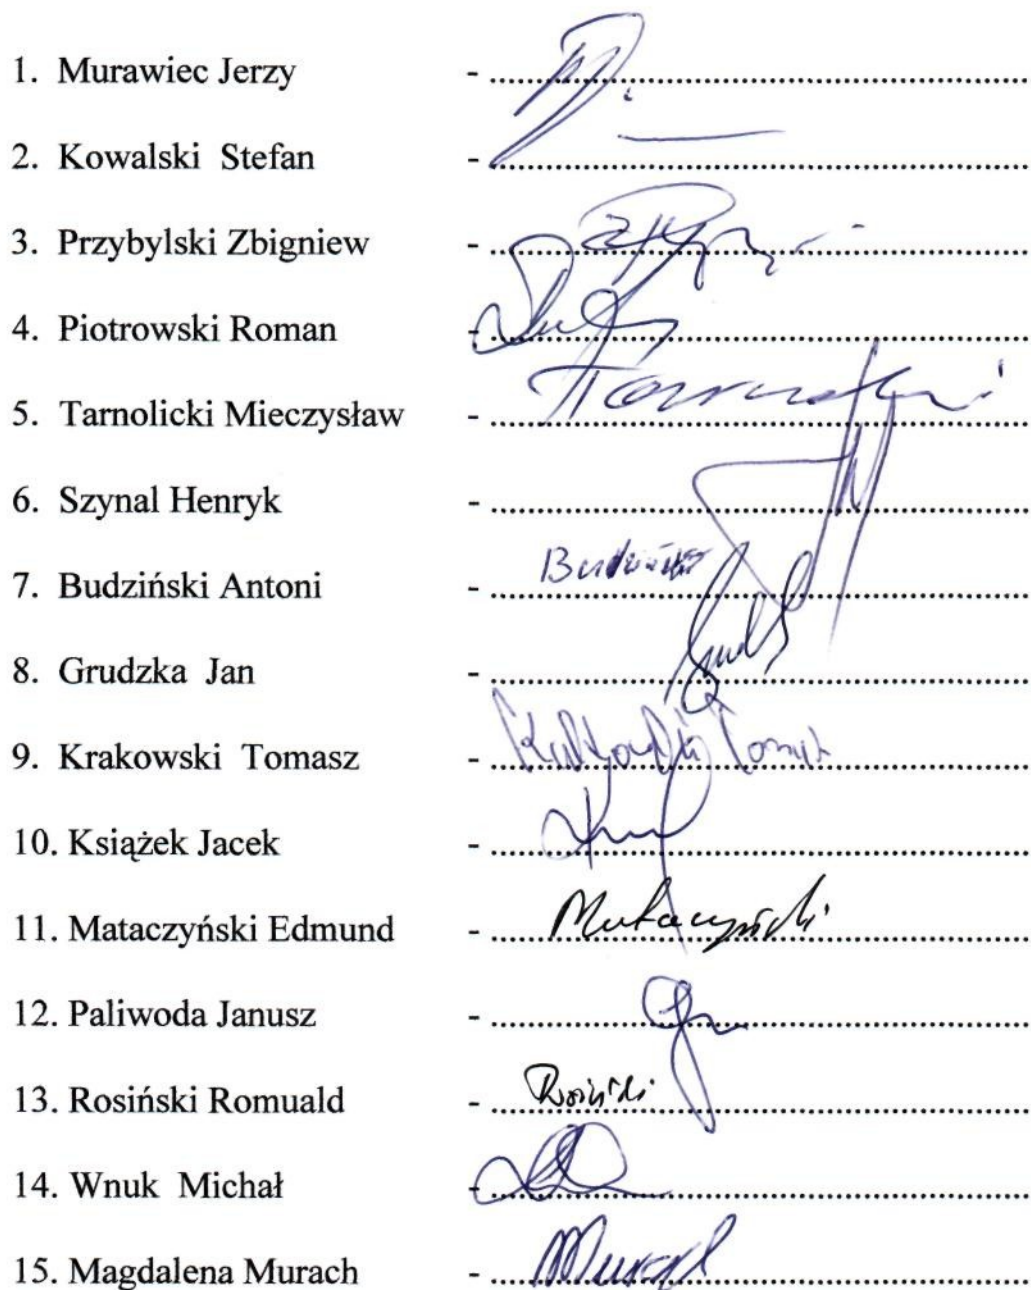 1. Murawiec Jerzy - ........................................
2. Kowalski Stefan - ........................................
3. Przybylski Zbigniew - ........................................
4. Piotrowski Roman - ........................................
5. Tarnolicki Mieczysław - ........................................
6. Szynal Henryk - ........................................
7. Budziński Antoni - ........................................ Budziński
8. Grudzka Jan - ........................................
9. Krakowski Tomasz - ........................................
10. Książek Jacek - ........................................
11. Mataczyński Edmund - ........................................ Mataczyński
12. Paliwoda Janusz - ........................................
13. Rosiński Romuald - ........................................ Rosiński
14. Wnuk Michał - ........................................
15. Magdalena Murach - ........................................ Murach